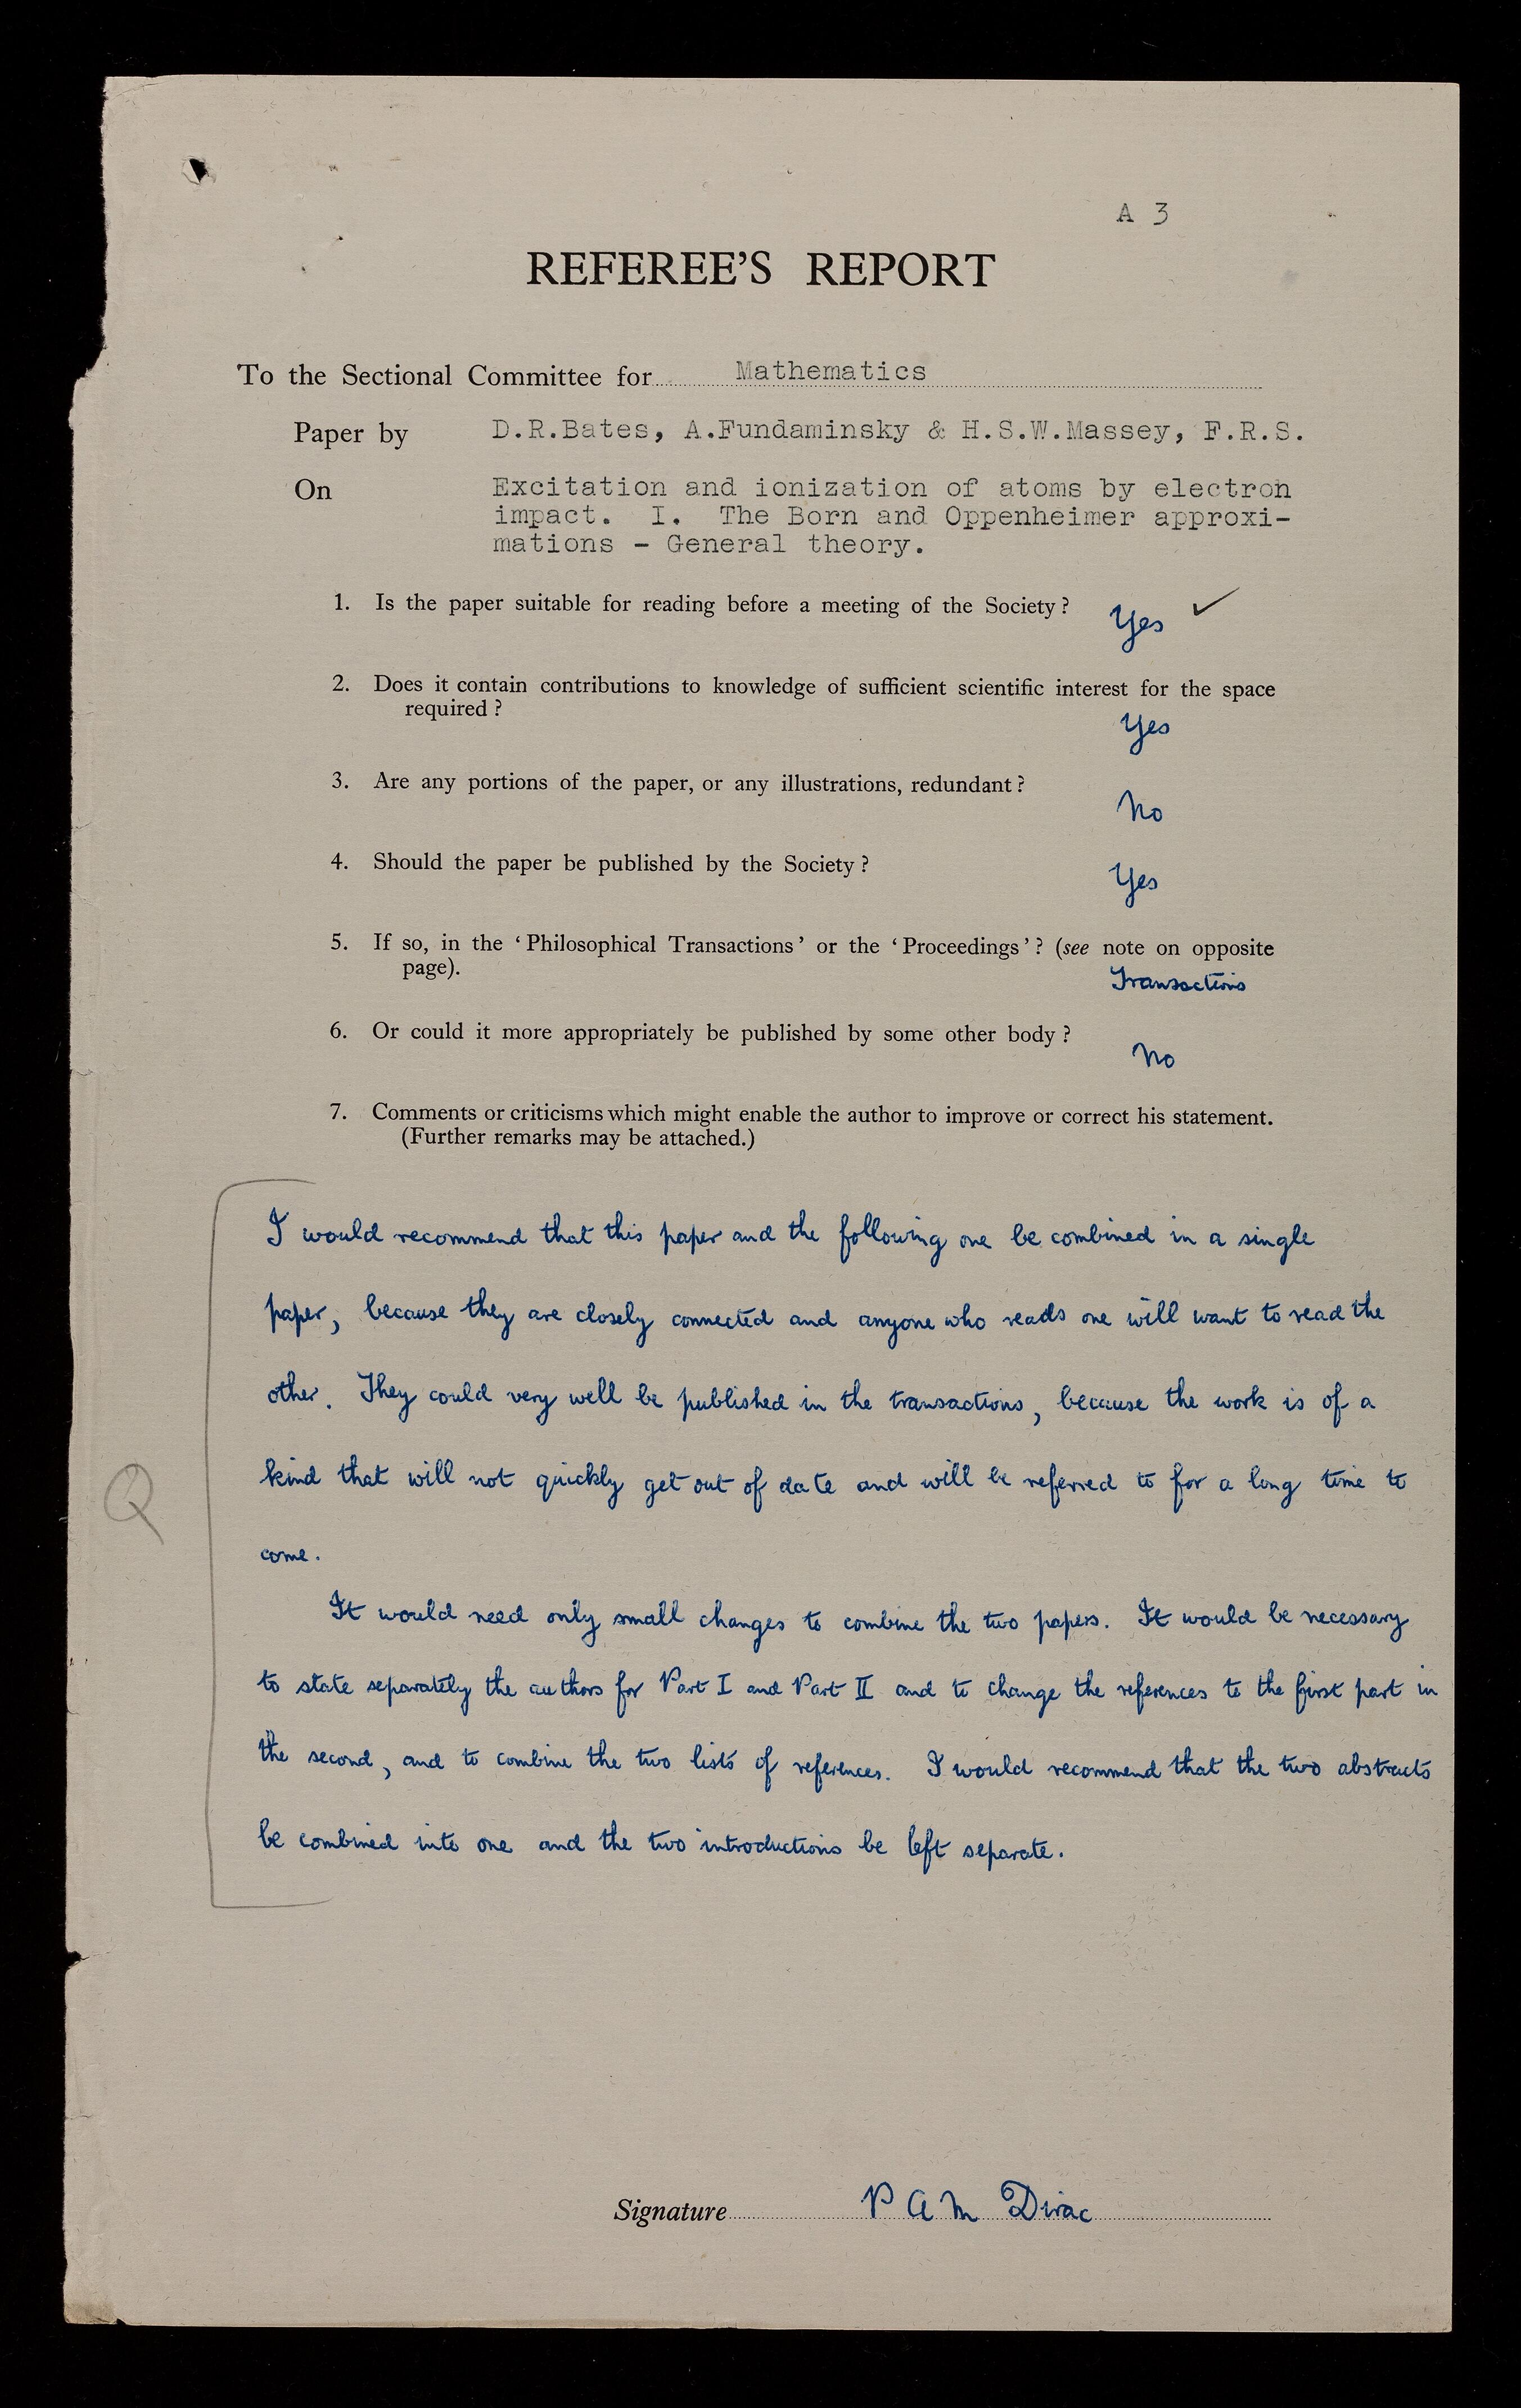 A 3
REFEREE'S REPORT
To the Sectional Committee for Mathematics
Paper by D.R.Bates, A.Fundaminsky & H.S.W.Massey, F.R.S.
On Excitation and ionization of atoms by electron
impact. I. The Born and Oppenheimer approxi-
mations - General theory.
1. Is the paper suitable for reading before a meeting of the Society? Yes ✓
2. Does it contain contributions to knowledge of sufficient scientific interest for the space
required?
Yes
3. Are any portions of the paper, or any illustrations, redundant?
No
4. Should the paper be published by the Society?
Yes
5. If so, in the 'Philosophical Transactions' or the 'Proceedings'? (see note on opposite
page).
Transactions
6. Or could it more appropriately be published by some other body?
No
7. Comments or criticisms which might enable the author to improve or correct his statement.
(Further remarks may be attached.)
I would recommend that this paper and the following one be combined in a single
paper, because they are closely connected and anyone who reads one will want to read the
other. They could very well be published in the transactions, because the work is of a
kind that will not quickly get out of date and will be referred to for a long time to
Q
come.
It would need only small changes to combine the two papers. It would be necessary
to state separately the authors for Part I and Part II and to change the references to the first part in
the second, and to combine the two lists of references. I would recommend that the two abstracts
be combined into one and the two introductions be left separate.
Signature P A M Dirac